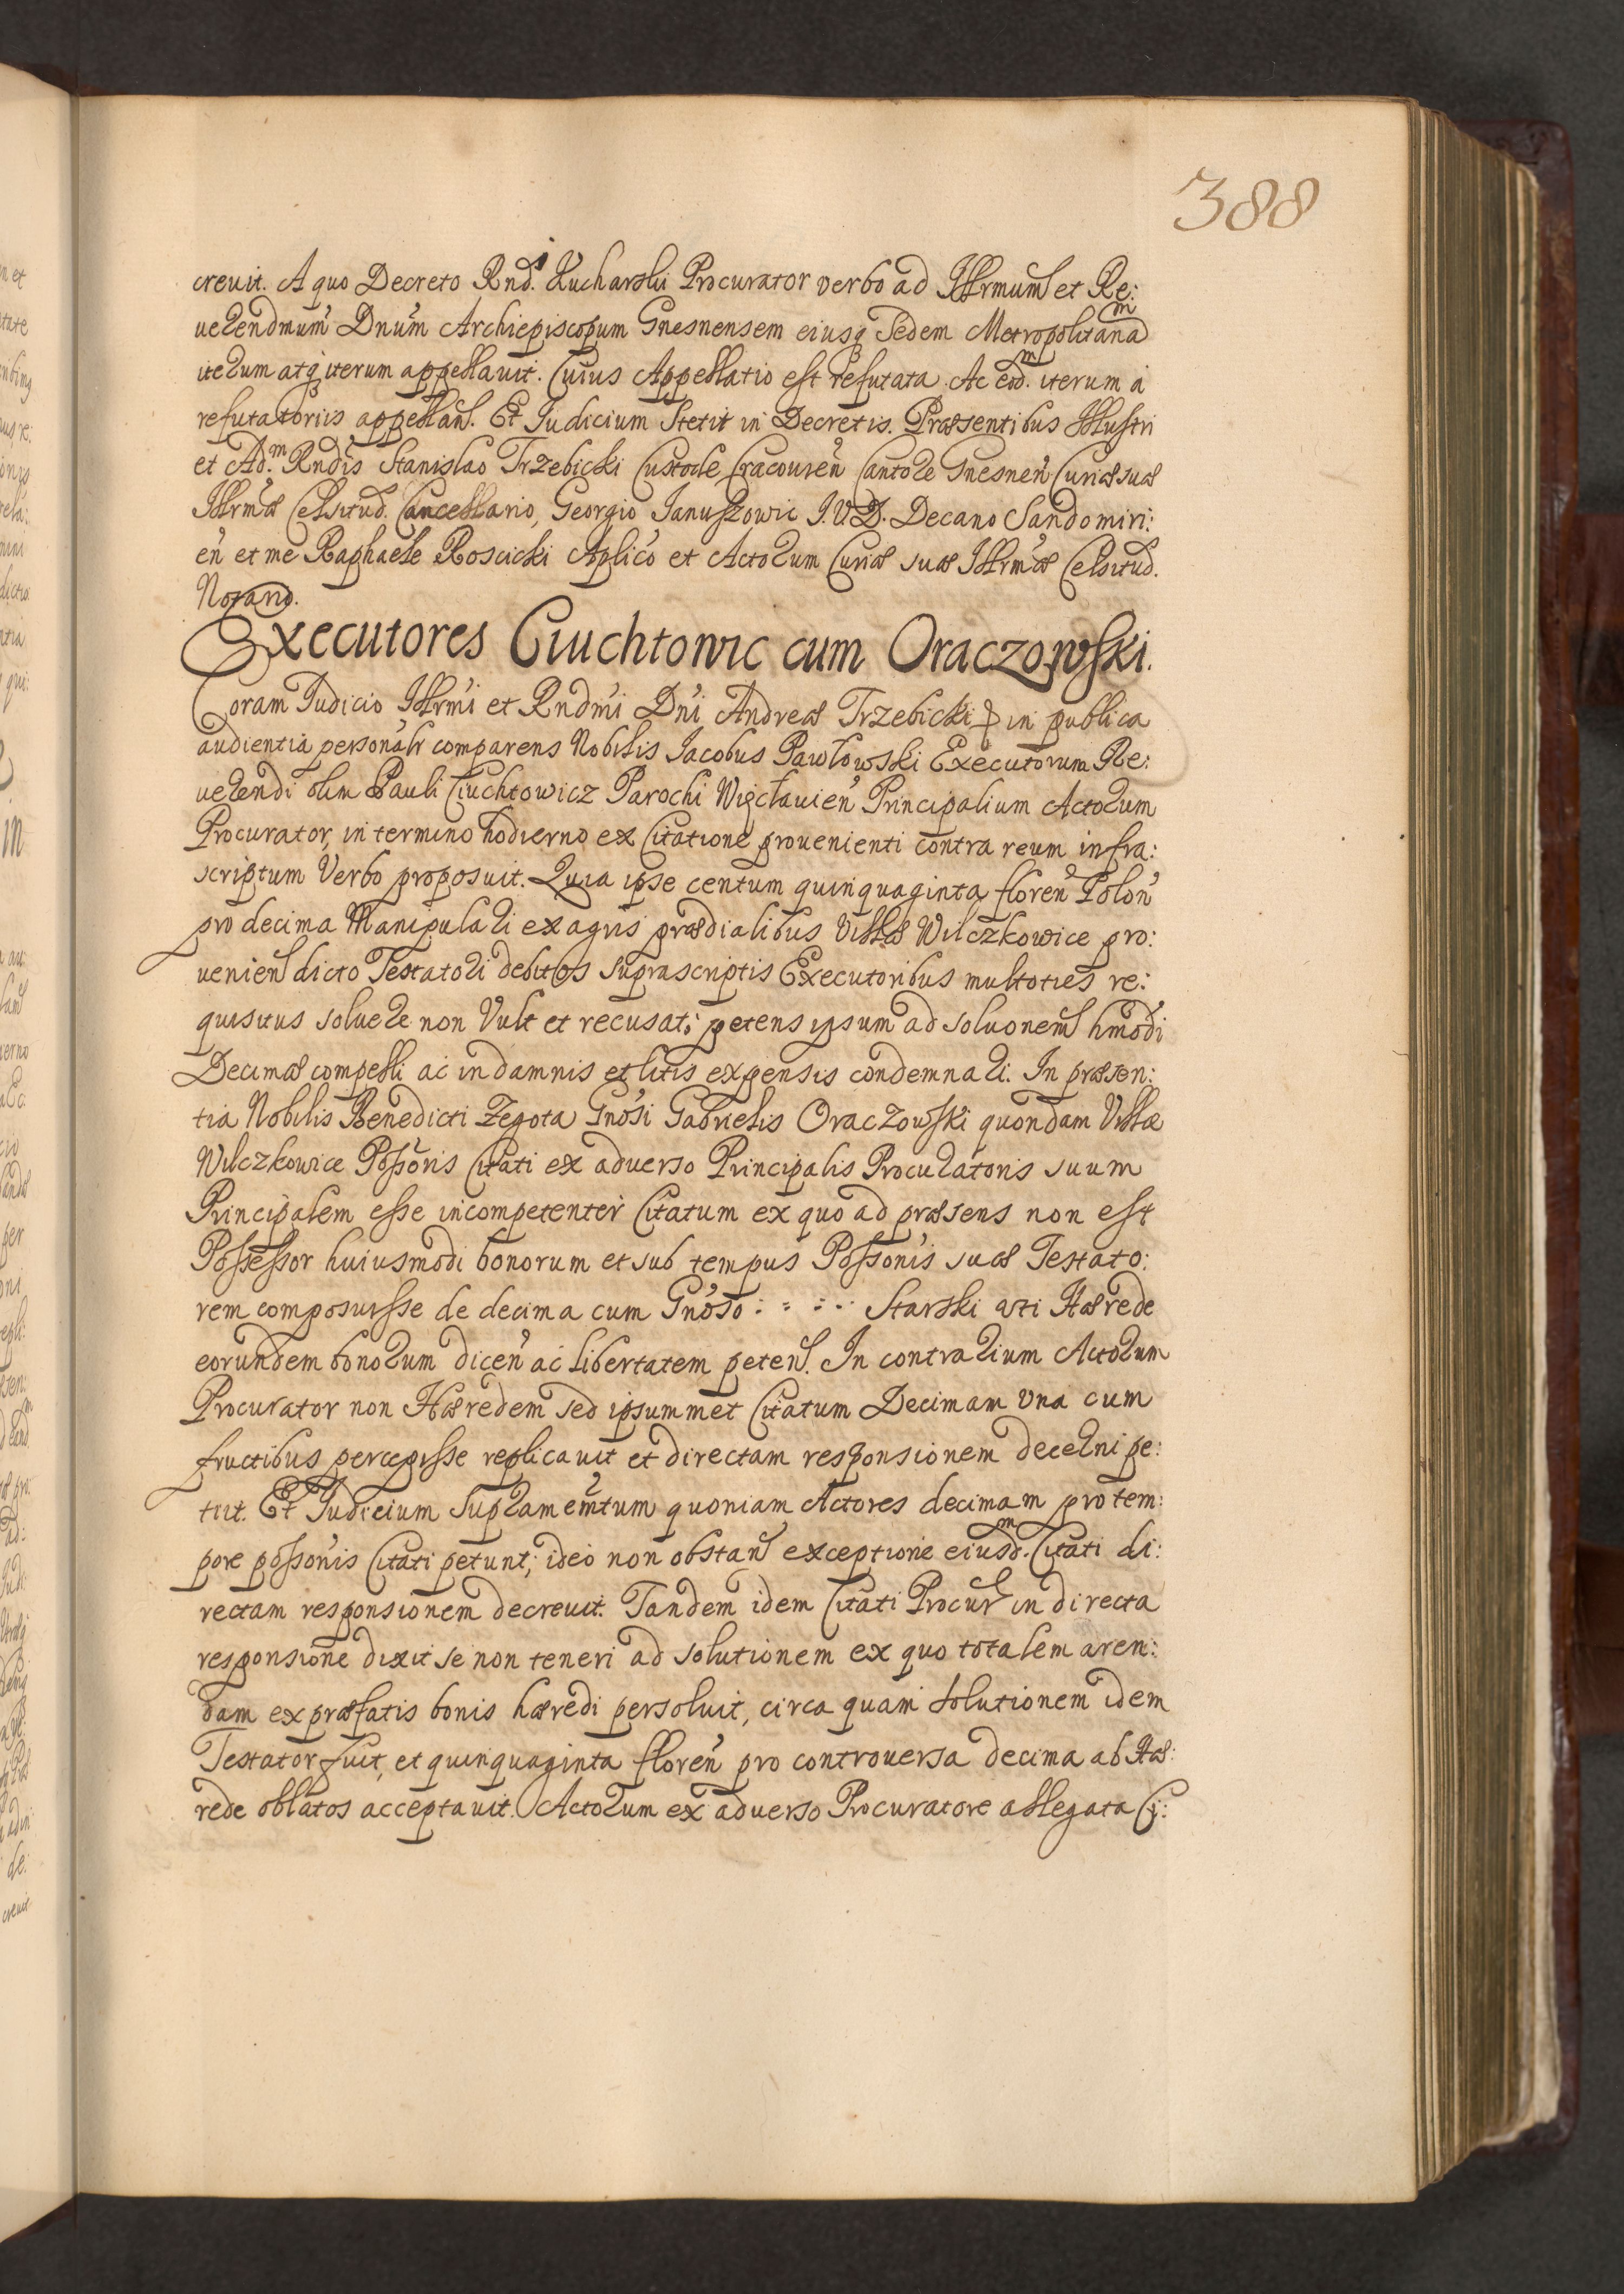 388
crevit. A quo Decreto Rnd. Kucharski Procurator verbo ad Illrmum et Re:
verendmum Dnum Archiepiscopum Gnesnensem eiusq Sedem Metropolitanam
iterum atq iterum appellavit. Cuius Appellatio est refutata. Ac eod.m iterum á
refutatoriis appellan. Et Judicium stetit in Decretis. Præsentibus Illustri
et Ad.m Rndis Stanislao Trzebicki Custode Cracovien Cantore Gnesnen Curiæ suæ
Illrmæ Celsitud. Cancellario, Georgio Januszowic J.V.D. Decano Sandomiri:
en et me Raphaele Roscicki Aplico et Actorum Curiæ suæ Illrmæ Celsitud.
Notario.
Executores Ciuchtowic cum Oraczowski.
Coram Judicio Illrmi et Rndmi Dni Andreæ Trzebicki in publica
audientia personalr comparens Nobilis Jacobus Pawłowski Executorum Re:
verendi olim Pauli Ciuchtowicz Parochi Więcłavien Principalium Actorum
Procurator, in termino hodierno ex Citatione provenienti contra reum infra:
scriptum Verbo proposuit. Quia ipse centum quinquaginta floren Polon
pro decima Manipulari ex agris prædialibus Villæ Wilczkowice pro:
venien dicto Testatori debitos suprascriptis Executoribus multoties re:
quisitus solvere non Vult et recusat; petens ipsum ad solvonem hmodi
Decimæ compelli ac in damnis et litis expensis condemnari. In præsen:
tia Nobilis Benedicti Zegota Gnosi Gabrielis Oraczowski quondam Villæ
Wilczkowice Possoris Citati ex adverso Principalis Procuratoris suum
Principalem esse incompetenter Citatum ex quo ad præsens non est
Possessor huiusmodi bonorum et sub tempus Possonis suæ Testato:
rem composuisse de decima cum Gnoso : = : ·· Starski uti Hærede
eorundem bonorum dicen ac libertatem peten. In contrarium Actorum
Procurator non Hæredem sed ipsummet Citatum Decimam una cum
fructibus percepisse replicavit et directam responsionem decerni pe:
tiit. Et Judicium supramemtum quoniam Actores decimam pro tem:
pore possonis Citati petunt; ideo non obstan exceptione eiusd.m Citati di:
rectam responsionem decrevit. Tandem idem Citati Procur in directa
responsione dixit se non teneri ad solutionem ex quo totalem aren:
dam ex præfatis bonis hæredi persolvit, circa quam solutionem idem
Testator fuit, et quinquaginta floren pro controversa decima ab Hæ:
rede oblatos acceptavit. Actorum ex adverso Procuratore allegata Ci: